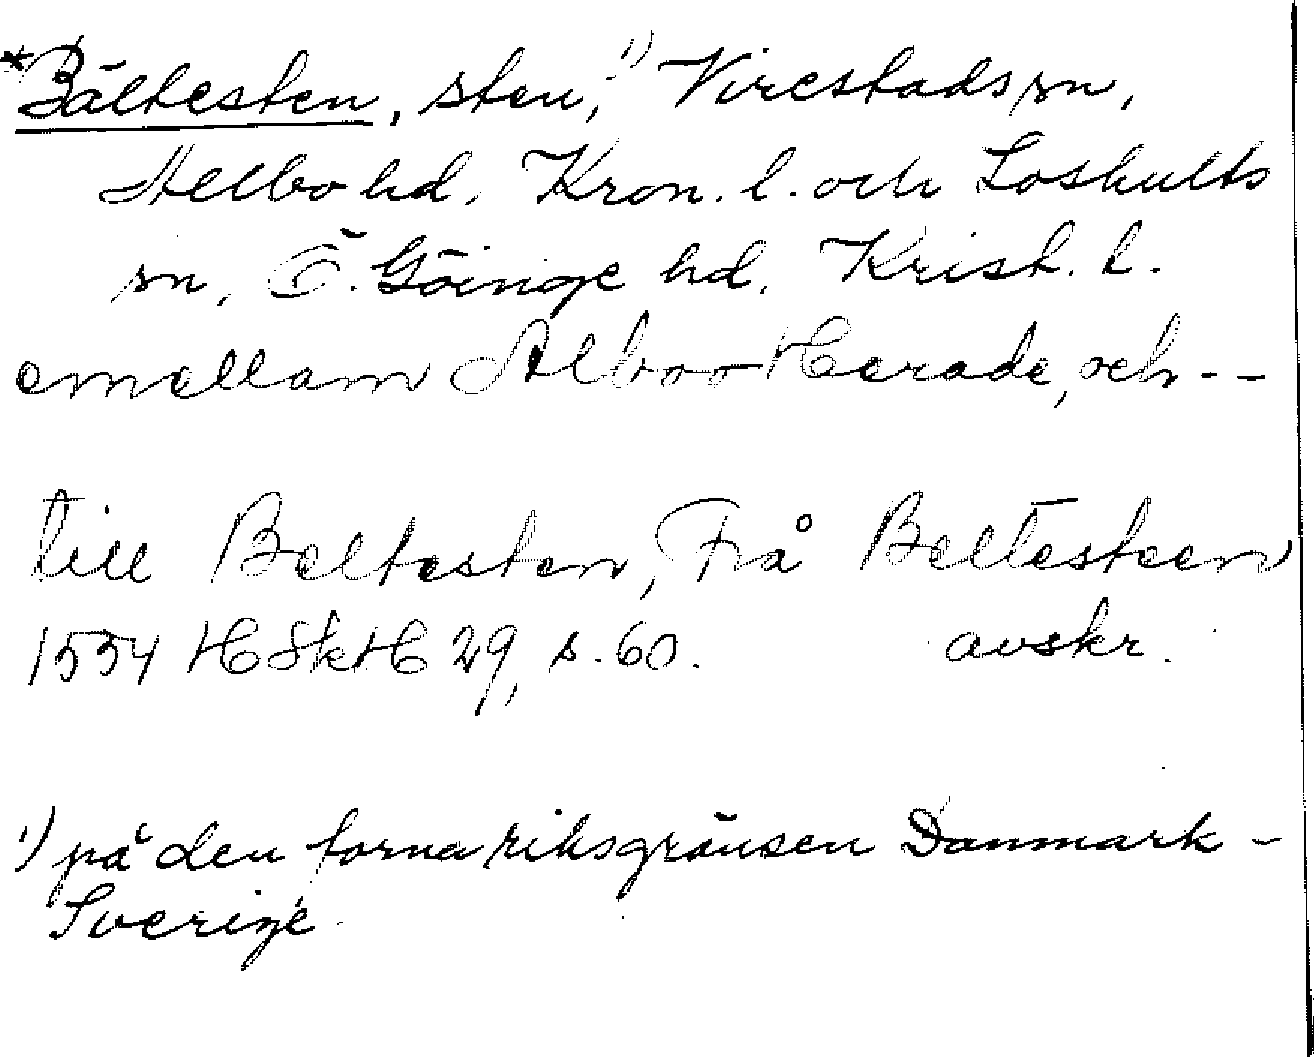 *Bältesten, sten,¹) Virestads sn,
Allbo hd, Kron. l. och Loshults
sn, Ö. Göinge hd, Krist. l.
emellam Alboo Herade, och --
till Beltesten, Frå Beltesteen
1554 HSkH 29, s. 60. avskr.
¹) på den forna riksgränsen Danmark -
Sverige